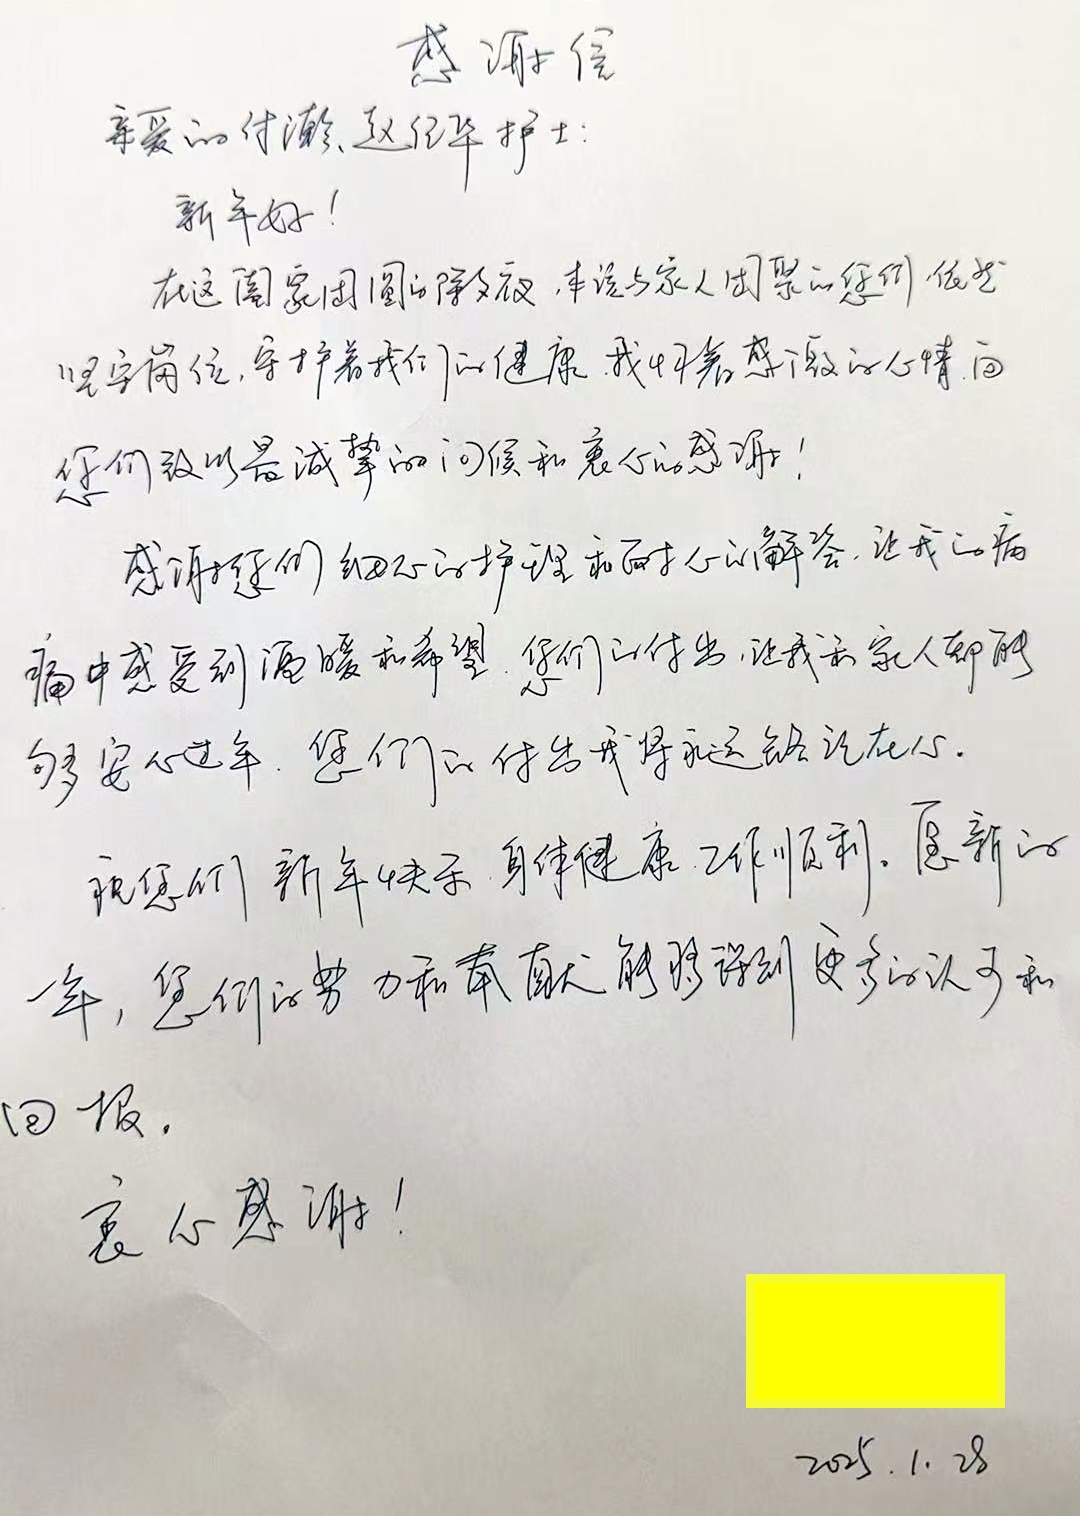 感谢信
亲爱的付潇、赵纪华护士：
新年好！
在这阖家团圆的除夕夜，本该与家人团聚的您们依然
坚守岗位，守护着我们的健康，我怀着感激的心情，向
您们致以最诚挚的问候和衷心的感谢！
感谢您们细心的护理和耐心的解答，让我的病
痛中感受到温暖和希望，您们的付出，让我和家人都能
够安心过年，您们的付出我将永远铭记在心。
祝您们新年快乐，身体健康，工作顺利。愿新的
一年，您们的努力和奉献能够得到更多的认可和
回报。
衷心感谢！
2025.1.28